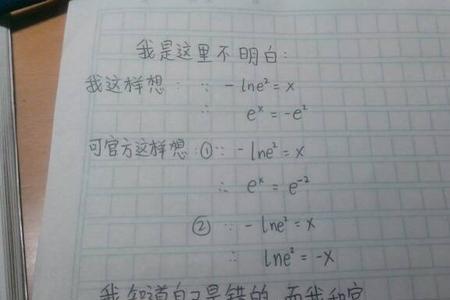 我是这里不明白:
我这样想: ∵ -lne²=x
∴ eˣ=-e²
可官方这样想: ①∵ -lne²=x
∴ eˣ=e⁻²
② ∵ -lne²=x
∴ lne²=-x
我知道自己是错的,而我和官